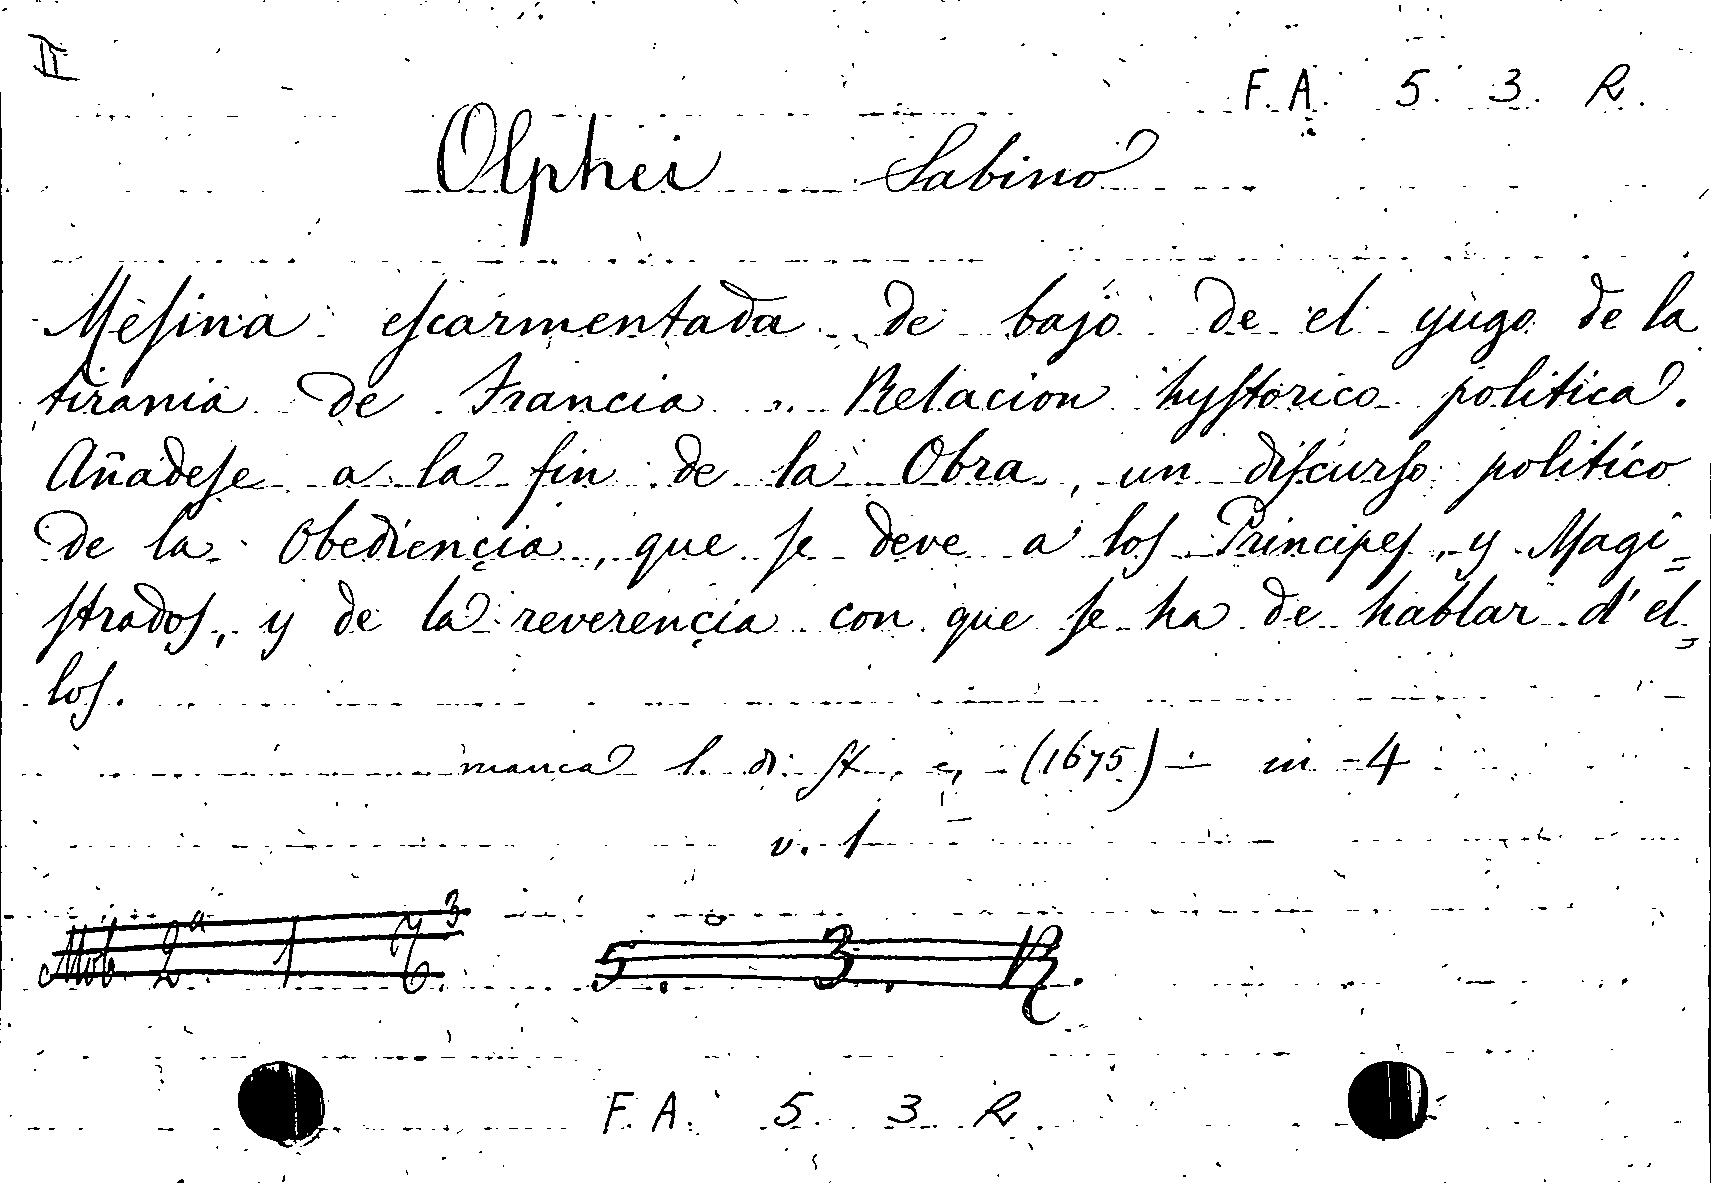 II
F. A. 5. 3. R.
Olphei Sabino
Mesina escarmentada de bajo de el yugo de la
tirania de Francia. Relacion hystorico politica.
Añadese a la fin de la Obra, un discurso politico
de la Obediençia, que se deve a los Principes, y Magi=
strados, y de la reverençia con que se ha de hablar d'el=
los.
manca l. di st. e, (1675) — in - 4
v. 1
Mob. 2ª 1.
5. 3. R.
F. A. 5. 3 R.